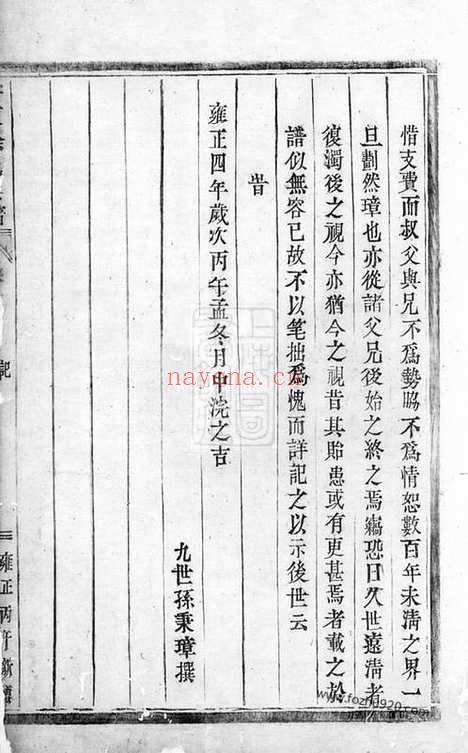 惜支費而叔父與兄不爲勢脇不爲情恕數百年未清之界一
旦劃然璋也亦從諸父兄後始之終之焉竊恐日久世遠清者
復濁後之視今亦猶今之視昔其貽患或有更甚焉者載之於
譜似無容已故不以笔拙爲愧而詳記之以示後世云
旹
雍正四年歲次丙午孟冬月中浣之吉
九世孫秉璋撰
記
雍正丙午新
nayona.cn
www.fozhu920.com